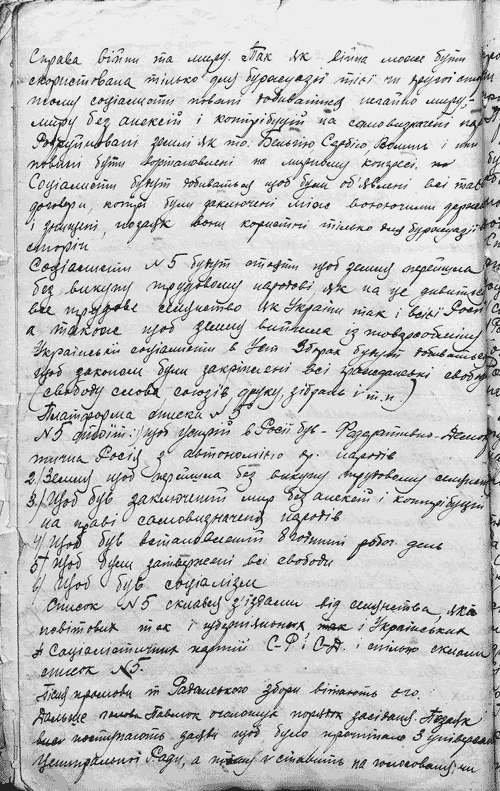 Справа війни та миру. Так як війна може бути
скористована тілько для буржуазії тієї чи другої
тому соціалисти повині добиватися негайно миру,
миру без анексій і контрібуцій на самовизначені
Розруйновані землі як то: Бельгію Сербію
повині бути вортановлені на мирному конгресі.
Соціалисти будут добиваться щоб були об'явлені всі
договори, котрі були заключені між воюючими
і знищені, позаяк вони користні тілько для буржуазії
сторін
Соціалисти № 5 будут стояти щоб земля перейшла
без викупу трудовому народові як на це дивиться
все трудове селянство як України так і всієї Росії
а також щоб землю
Українські соціалисти в Уст. Зборах будут добиваться
щоб законом були закріплені всі гражданські свободи
(свободу слова, союзів, друку, зібрань і т.п.)
Платформа списка № 5
№ 5 стоїть: 1) щоб устрій в Росії був - Федеративно-
тична Росія з автономією народів
2) Земля щоб перейшла без викупу трудовому
3) Щоб був заключений мир без анексій і контрібуцій
на праві самовизначеня народів
4) Щоб був встановлений 8 годинний робоч. день
5) Щоб були затвержені всі свободи
Щоб був соціалізм
Список № 5 склався з'їздами від селянства, як
повітових так і губерніяльних так і Українських
Соціалистичних партій С-Р. і С-Д. і спільно склали
список № 5.
Після промови т. Радянського збори вітають его.
Дальше голова Павлюк оголошує порядок засідання. Позаяк
поступають заяви щоб було прочитано 3 універсал
Центральної Ради, а тому і ставить на голосованя: чи